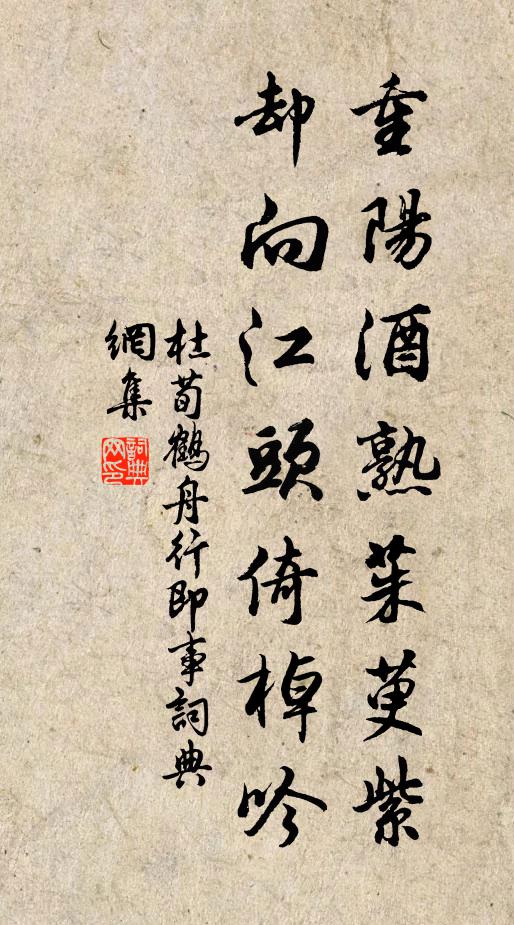 重陽酒熟茱萸紫
却向江頭倚棹吟
杜荀鶴舟行即事詞典
網集
詞典網印